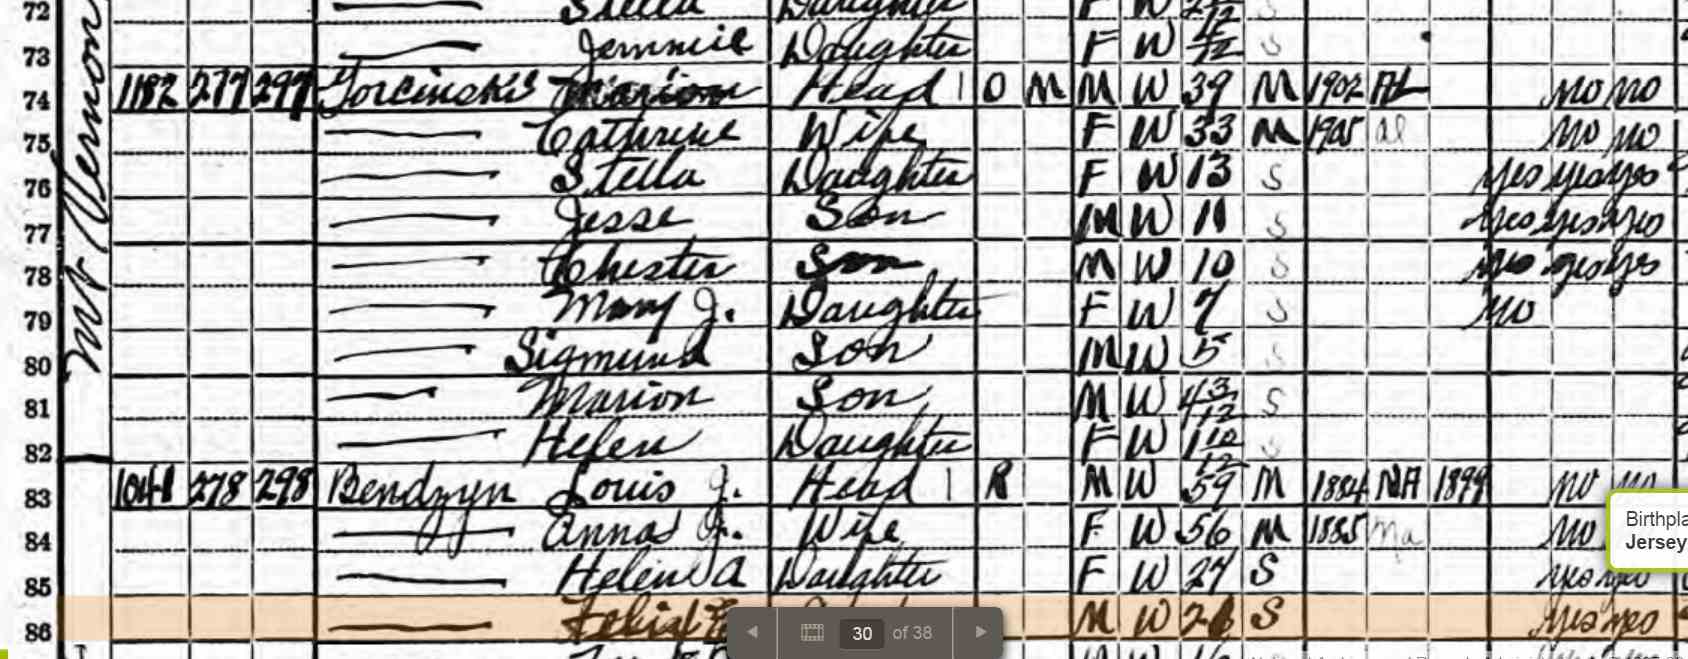 72 Stella Daughter F W S
73 Jemmie Daughter F W 4/12 S
74 1182 277 297 Head O M M W 39 M 1902 AL no no
75 Cathrine Wife F W 33 M 1905 al no no
76 Stella Daughter F W 13 S yes yes yes
77 Jesse Son M W 11 S yes yes yes
78 Chester Son M W 10 S yes yes yes
79 Mary J. Daughter F W 7 S no
80 Sigmund Son M W 5 S
81 Marion Son M W 4 3/12 S
82 Helen Daughter F W 1 10/12 S
83 1041 278 298 Bendzyn Louis J. Head R M W 59 M 1884 NA 1899 no no
84 Anna J. Wife F W 56 M 1885 Na no
85 Helen A Daughter F W 27 S yes yes
86 M W S yes yes
Mt Vernon
Birthpla
Jersey
30 of 38